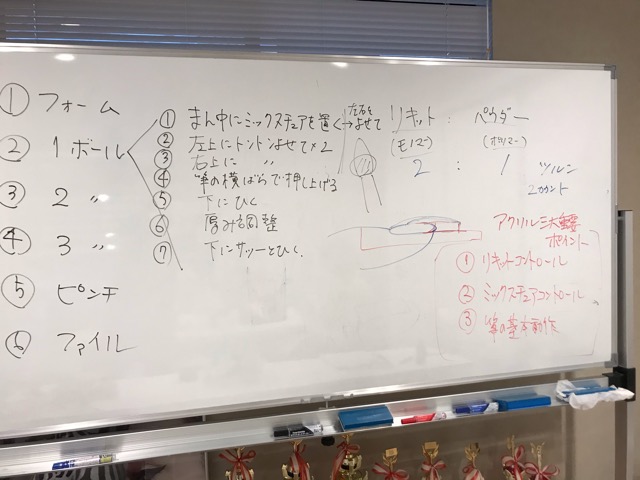 ① フォーム
② 1ボール
③ 2 〃
④ 3 〃
⑤ ピンチ
⑥ ファイル
① まん中にミックスチュアを置く→左右をよせて
② 左上にトントンよせて×2
③ 右上に 〃
④ 筆の横ばらで押し上げる
⑤ 下にひく
⑥ 厚みを調整
⑦ 下にサッーとひく.
リキット : パウダー
(モノマー) (ポリマー)
2 : 1 ツルン
2カウント
アクリル三大重要
ポイント
① リキットコントロール
② ミックスチュアコントロール
③ 筆の基本動作